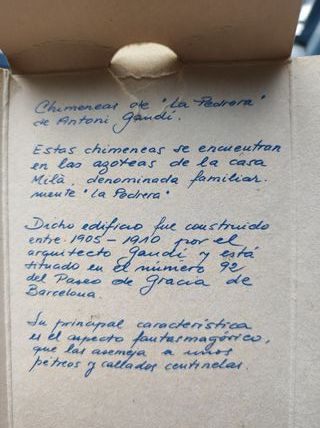 Chimeneas de "La Pedrera"
de Antoni Gaudí.
Estas chimeneas se encuentran
en las azoteas de la casa
Milà, denominada familiar-
mente "La Pedrera"
Dicho edificio fue construido
entre 1905-1910 por el
arquitecto Gaudí y está
situado en el número 92,
del Paseo de Gracia de
Barcelona.
Su principal característica
es el aspecto fantasmagórico,
que las asemeja a unos
pétreos y callados centinelas.